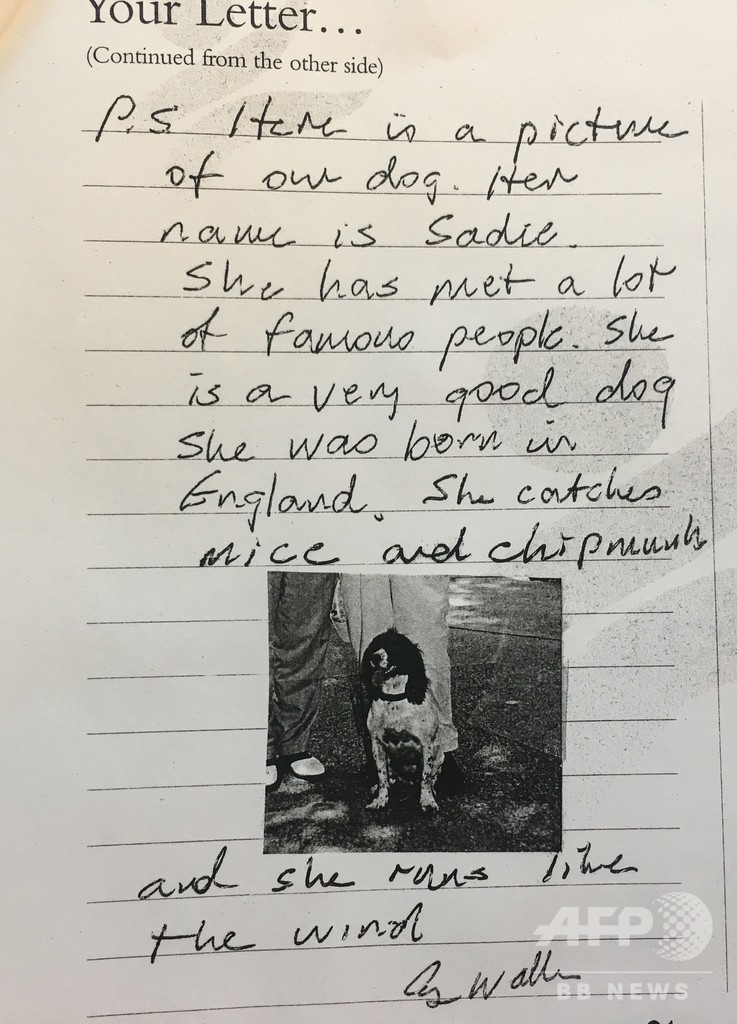 Your Letter...
(Continued from the other side)
P.S. Here is a picture
of our dog. Her
name is Sadie.
She has met a lot
of famous people. She
is a very good dog
She was born in
England. She catches
mice and chipmunks
and she runs like
the wind
G Walker
AFP
BB NEWS